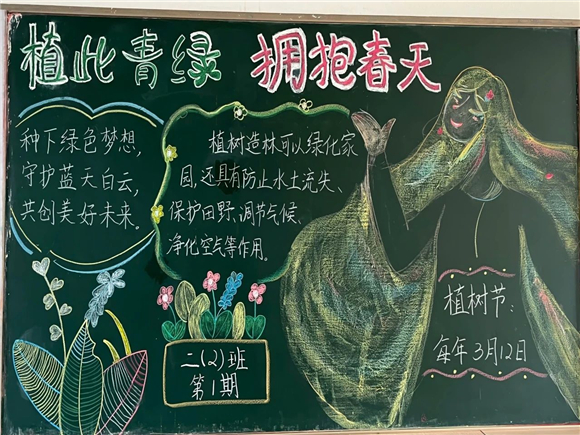 植此青绿 拥抱春天
种下绿色梦想，
守护蓝天白云，
共创美好未来。
植树造林可以绿化家
园，还具有防止水土流失、
保护田野、调节气候、
净化空气等作用。
二(2)班
第1期
植树节：
每年3月12日